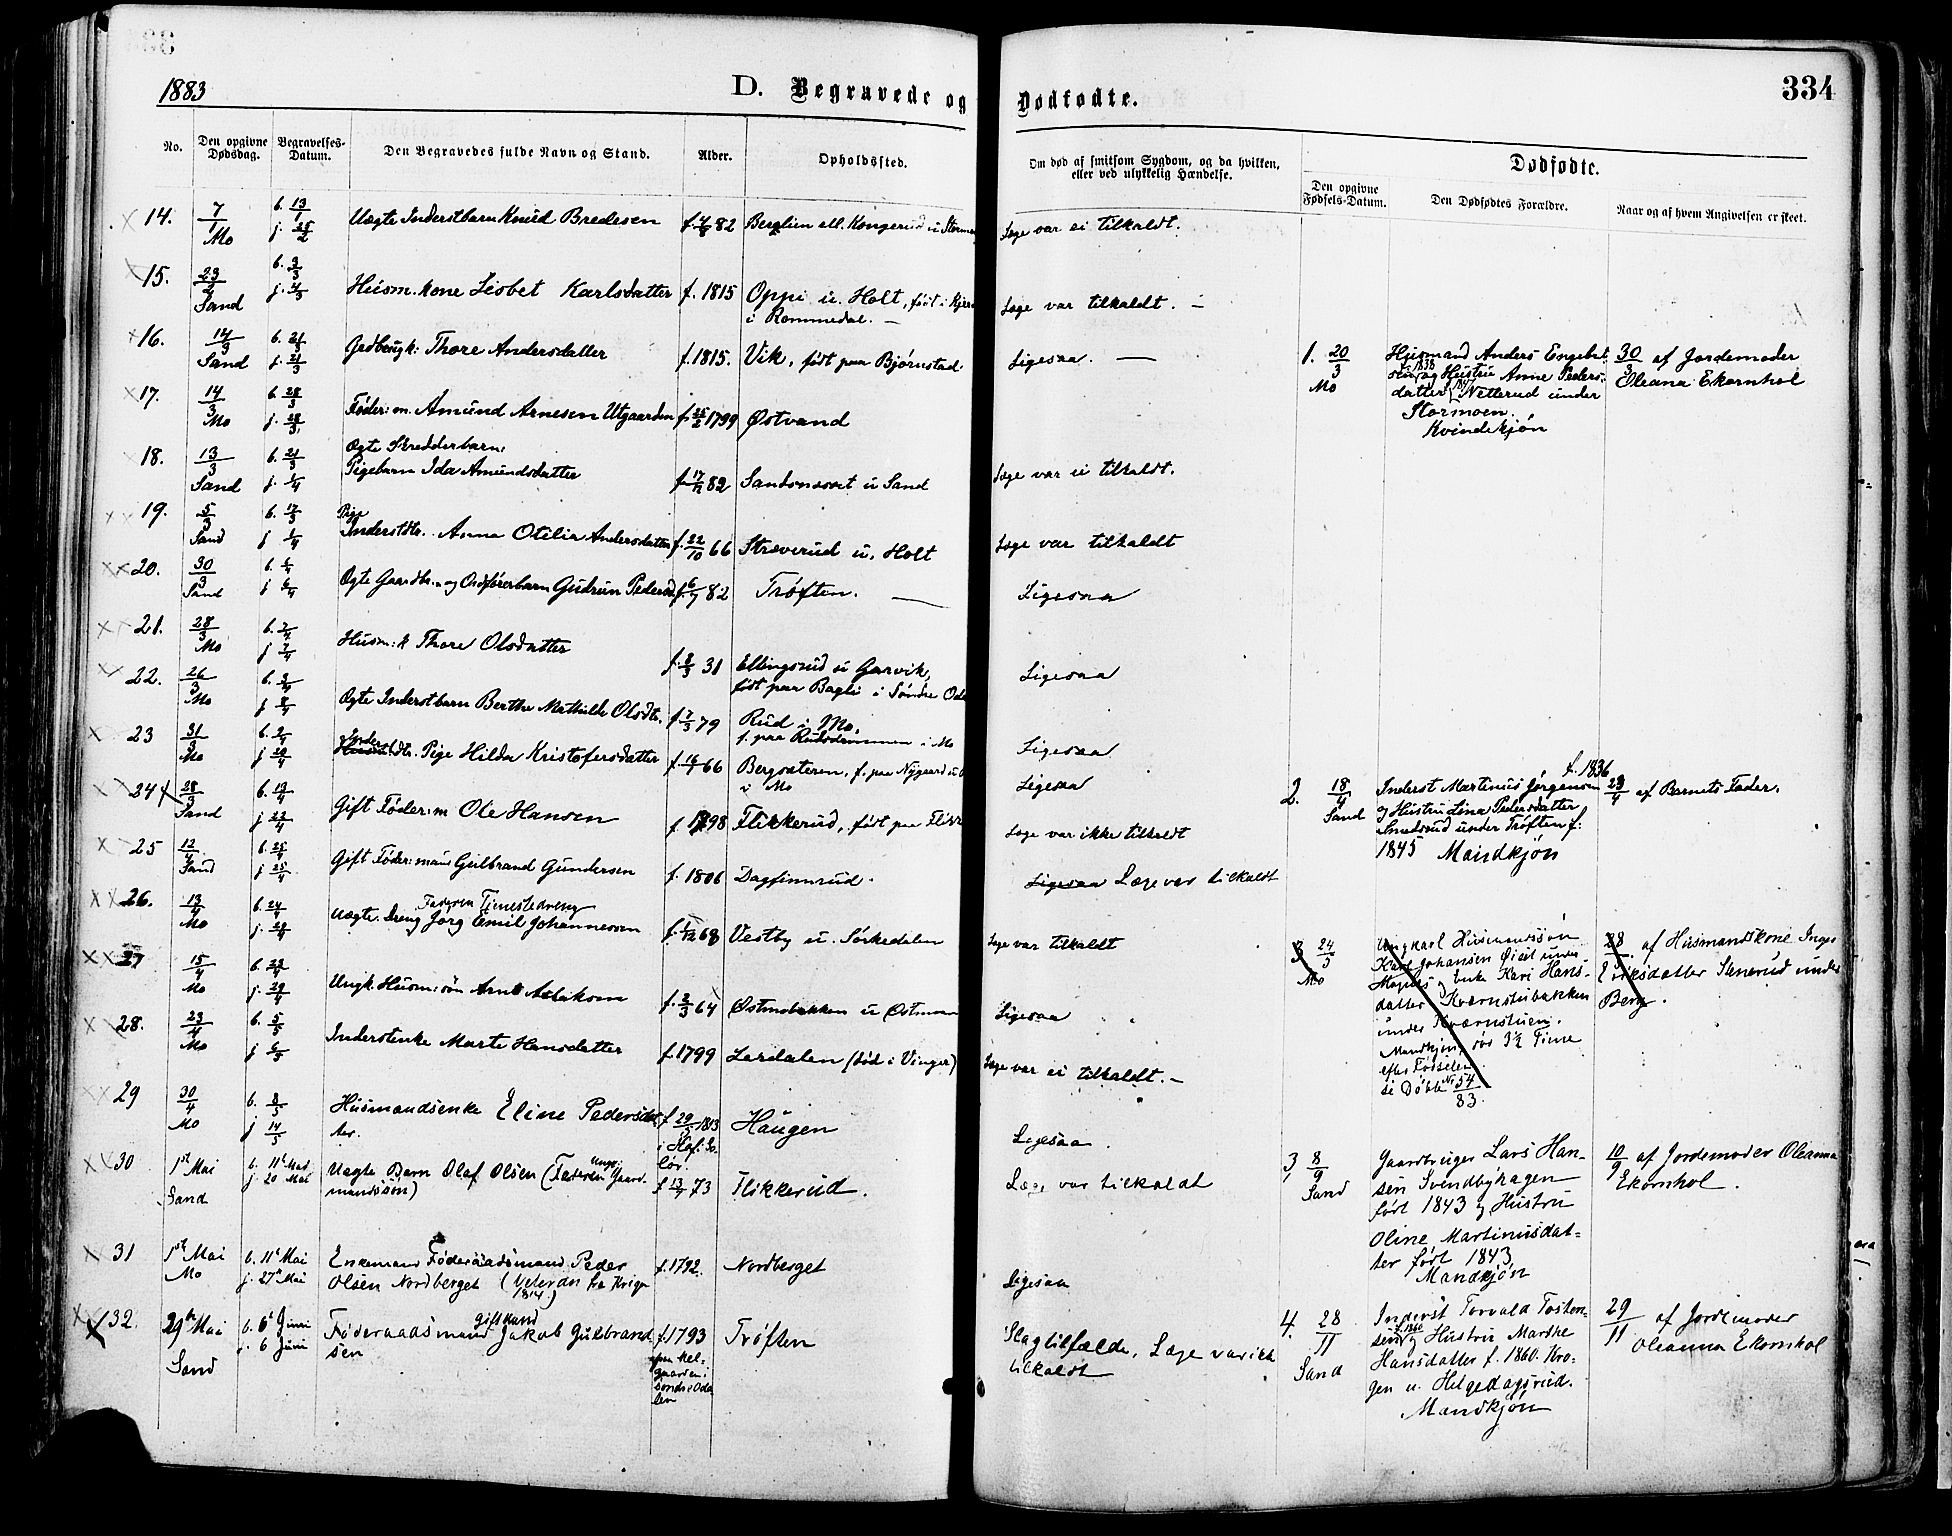 1883
D. Begravede og Dødfødte.
334
No.
Den opgivne Dødsdag.
Begravelses-Datum.
Den Begravedes fulde Navn og Stand.
Alder.
Opholdssted.
Om død af smitsom Sygdom, og da hvilken,
eller ved ulykkelig Hændelse.
Dødfødte.
Den opgivne Fødsels-Datum.
Den Dødfødtes Forældre.
Naar og af hvem Angivelsen er skeet.
14. 7/1 Mo b. 13/1 j. 25/2 Uægte Inderstbarn Knud Bredesen f. 4/8 82 Berglien ell. Kongerud u Stormo Læge var ei tilkaldt.
15. 23/2 Sand b. 3/3 j. 4/3 Husm. kone Lisbet Karlsdatter f. 1815 Oppi u. Holt, født i
i Rommedal. — Læge var tilkaldt. —
16. 14/3 Sand b. 21/3 j. 21/3 Grdbrugk: Thore Andersdatter f. 1815. Vik, født paa Bjørnstad. Ligesaa. —
17. 14/3 Mo b. 28/3 j. 28/3 Føder: m. Amund Arnesen Utgaarden f. 25/2 1799 Østvand
18. 13/3 Sand b. 21/3 j. 1/4 Ægte Skredderbarn
Pigebarn Ida Amundsdatter f. 17/12 82 Sandsnæsset u Sand Læge var ei tilkaldt.
19. 5/3 Sand b. 17/3 j. 1/4 Pige
Inderstdtr. Anna Otilia Andersdatter f. 22/10 66 Stræverud u. Holt Læge var tilkaldt
20. 30/3 Sand b. 5/4 j. 6/4 Ægte Gaardbr. og Ordførerbarn Gudrun Pedersd f. 16/7 82 Trøften. — Ligesaa
21. 28/3 Mo b. 2/4 j. 7/4 Husm: k Thore Olsdatter f. 8/3 31 Ellingsrud u Garvik,
født paa Bagli i Søndre Odal Ligesaa
22. 26/3 Mo b. 3/4 j. 8/4 Ægte Inderstbarn Berthe Mathilde Olsdtr. f. 7/3 79 Rud i Mo.
f. paa Rudsdammen i Mo Ligesaa
23 31/3 Mo b. 2/4 j. 20/4 Inderst
Husmdtr. Pige Hilda Kristofersdatter f. 16/7 66 Bergsæteren, f. paa Nygaard u
i Mo Ligesaa
24 28/3 Sand b. 13/4 j. 22/4 Gift Føder: m Ole Hansen f. 1798 Flikkerud, født paa Flikk Læge var ikke tilkaldt
25 12/4 Sand b. 25/4 j. 25/4 Gift Føder: man Gulbrand Gundersen f. 1806 Dagfinnrud. Ligesaa Læge var tilkaldt
26. 13/4 Mo b. 24/4 j. 29/4 Faderen Tjenestedreng
Uægte. Dreng Jørg Emil Johannessen f. 1/12 68 Vestby u. Sørkedalen Læge var tilkaldt
27 15/4 Mo b. 23/4 j. 29/4 Ungk. Husm: søn Arnt Aslaksen f. 2/3 64 Østmobakken u Østmoen Ligesaa
28. 23/4 Mo b. 5/5 j. 6/5 Inderstenke Marte Hansdatter f. 1799 Lerdalen (død i Vinger) Læge var ei tilkaldt. —
29 30/4 Mo b. 8/5 j. 14/5 Husmandsenke Eline Pedersdat
ter. f. 29/5 1813
i Hof: So
lør. Haugen Ligesaa.
30 1st Mai Sand b. 11t Mai j. 20 Mai Uægte Barn Olaf Olsen (Faderen Ungk: Gaard-
mandssøn) f. 13/7 73 Flikkerud. Læge var tilkaldt
31 1st Mai Mo b. 11t Mai j. 27n Mai Enkemand Føderaadsmand Peder
Olsen Nordberget (Veteran fra Krign
1814.) f. 1792. Nordberget Ligesaa
32. 29de Mai Sand b. 6t Juni j. 6 Juni gift Mand
Føderaadsmand Jakob Gulbrand-
sen f. 1793
paa Hel-
gaarden i
søndre Oda
len Trøften Slagtilfælde, Læge var ikke
tilkaldt
1. 20/3 Mo Husmand Anders Engebret
sen f. 1838 og Hustru Anne Peders-
datter f. 1847 Netterud under
Stormoen.
Kvindekjøn
30/3 af Jordemoder
Oleana Ekornhol
2. 18/4 Sand f. 1836
Inderst Martinus Jørgensen
og Hustru Lina Pedersdatter
Smedsrud under Trøften f.
1845 Mandkjøn
23/4 af Barnets Fader.
3 24/5 Mo Ungkarl Husmandssøn
Karl Johansen Øiset under
og Enke Kari Hans-
datter Kværnstubakken
under Kværnstuen.
Mandkjøn, død 3½ Time
efter Fødselen
se Døbte No 54/83.
28/5 af Husmandskone Inger
Eriksdatter Stenerud under
Berg.
3, 8/9 Sand Gaardbruger Lars Han-
sen Svendbyhagen
født 1843 og Hustru
Oline Martinusdat-
ter født 1843
Mandkjøn
10/9 af Jordemoder Oleanna
Ekornhol.
4. 28/11 Sand Inderst Torvald Tosten-
sen f. 1860 og Hustru Marthe
Hansdatter f. 1860. Kro-
gen u. Helgedagsrud.
Mandkjøn
29/11 af Jordemoder
Oleanna Ekornhol